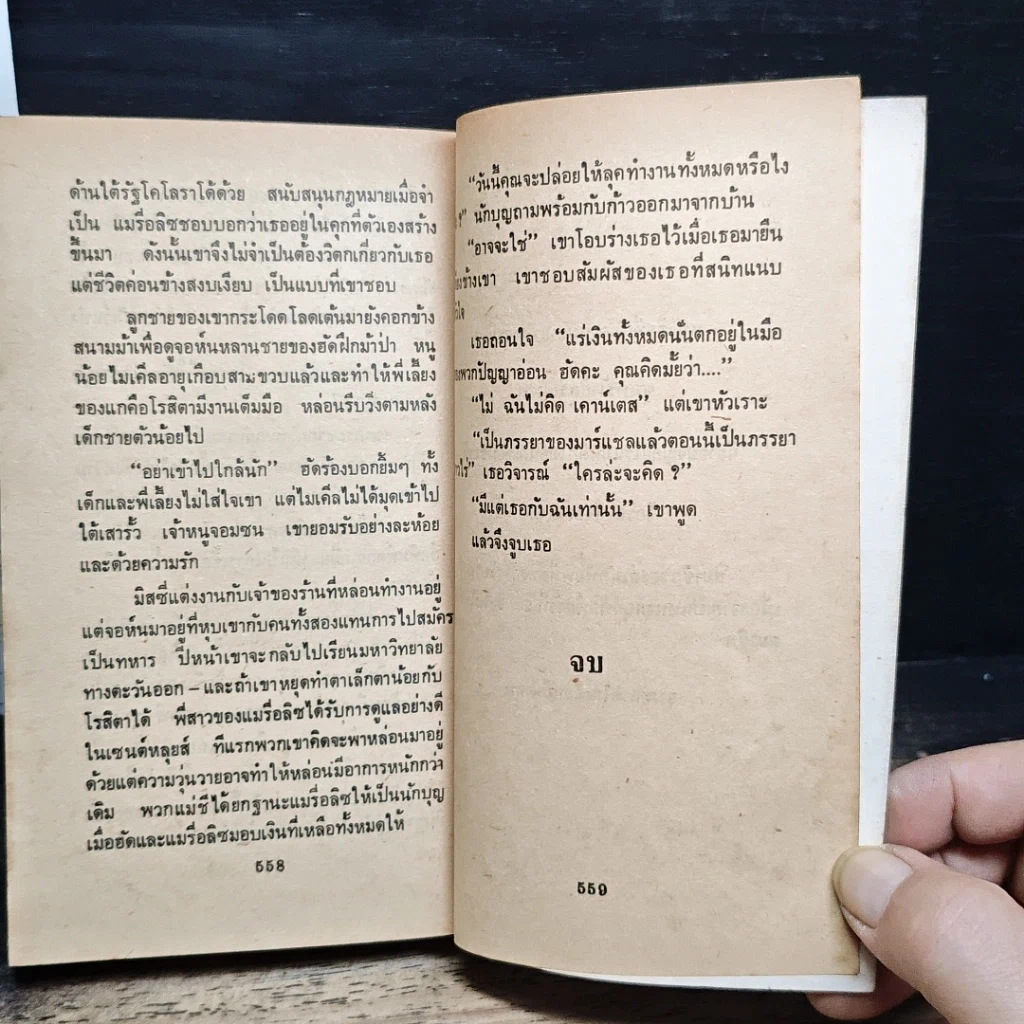 ด้านใต้รัฐโคโลราโด้ด้วย สนับสนุนกฎหมายเมื่อจำ
เป็น แมรี่อลิซชอบบอกว่าเธออยู่ในคุกที่ตัวเองสร้าง
ขึ้นมา ดังนั้นเขาจึงไม่จำเป็นต้องวิตกเกี่ยวกับเธอ
แต่ชีวิตค่อนข้างสงบเงียบ เป็นแบบที่เขาชอบ
ลูกชายของเขากระโดดโลดเต้นมายังคอกข้าง
สนามม้าเพื่อดูจอห์นหลานชายของฮัดฝึกม้าป่า หนู
น้อยไมเคิลอายุเกือบสามขวบแล้วและทำให้พี่เลี้ยง
ของแกคือโรสิตามีงานเต็มมือ หล่อนรีบวิ่งตามหลัง
เด็กชายตัวน้อยไป
“อย่าเข้าไปใกล้นัก” ฮัดร้องบอกยิ้มๆ ทั้ง
เด็กและพี่เลี้ยงไม่ใส่ใจเขา แต่ไมเคิลไม่ได้มุดเข้าไป
ใต้เสารั้ว เจ้าหนูจอมซน เขายอมรับอย่างละห้อย
และด้วยความรัก
มิสซี่แต่งงานกับเจ้าของร้านที่หล่อนทำงานอยู่
แต่จอห์นมาอยู่ที่หุบเขากับคนทั้งสองแทนการไปสมัคร
เป็นทหาร ปีหน้าเขาจะกลับไปเรียนมหาวิทยาลัย
ทางตะวันออก – และถ้าเขาหยุดทำตาเล็กตาน้อยกับ
โรสิตาได้ พี่สาวของแมรี่อลิซได้รับการดูแลอย่างดี
ในเซนต์หลุยส์ ทีแรกพวกเขาคิดจะพาหล่อนมาอยู่
ด้วยแต่ความวุ่นวายอาจทำให้หล่อนมีอาการหนักกว่า
เดิม พวกแม่ชีได้ยกฐานะแมรี่อลิซให้เป็นนักบุญ
เมื่อฮัดและแมรี่อลิซมอบเงินที่เหลือทั้งหมดให้
558
“วันนี้คุณจะปล่อยให้ลุคทำงานทั้งหมดหรือไง
?” นักบุญถามพร้อมกับก้าวออกมาจากบ้าน
“อาจจะใช่” เขาโอบร่างเธอไว้เมื่อเธอมายืน
ข้างเขา เขาชอบสัมผัสของเธอที่สนิทแนบ
เธอถอนใจ “แร่เงินทั้งหมดนั่นตกอยู่ในมือ
พวกปัญญาอ่อน ฮัดคะ คุณคิดมั้ยว่า....”
“ไม่ ฉันไม่คิด เคาน์เตส” แต่เขาหัวเราะ
“เป็นภรรยาของมาร์แชลแล้วตอนนี้เป็นภรรยา
เธอวิจารณ์ “ใครล่ะจะคิด ?”
“มีแต่เธอกับฉันเท่านั้น” เขาพูด
แล้วจึงจูบเธอ
จบ
559